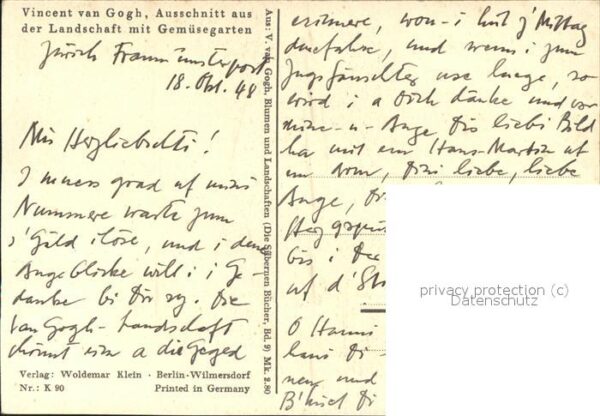 Vincent van Gogh, Ausschnitt aus
der Landschaft mit Gemüsegarten
Zürich Fraumünsterpost
18. Okt. 48
Mis Herzliebschti!
I muess grad uf mini
Nummere warte zum
s'Gäld ilöse, und i dene
Augeblicke will i i Ge-
danke bi Dir sy. Die
van Gogh-Landschaft
chönnt eim a die Geged
Verlag: Woldemar Klein · Berlin-Wilmersdorf
Nr.: K 90 Printed in Germany
Aus: V. van Gogh, Blumen und Landschaften (Die Silbernen Bücher, Bd. 9) Mk. 2.80
erinnere, won-i hüt z'Mittag
durefahre, und wenn i zum
Zugsfänschter use luege, so
wird i a Dich danke und vor
mine Auge, Dis liebi Bild
ha mit em Hans-Martin uf
em Arm, Dini liebe, liebe
Auge,
bis i
uf d'
O Hanni
und
privacy protection (c)
Datenschutz